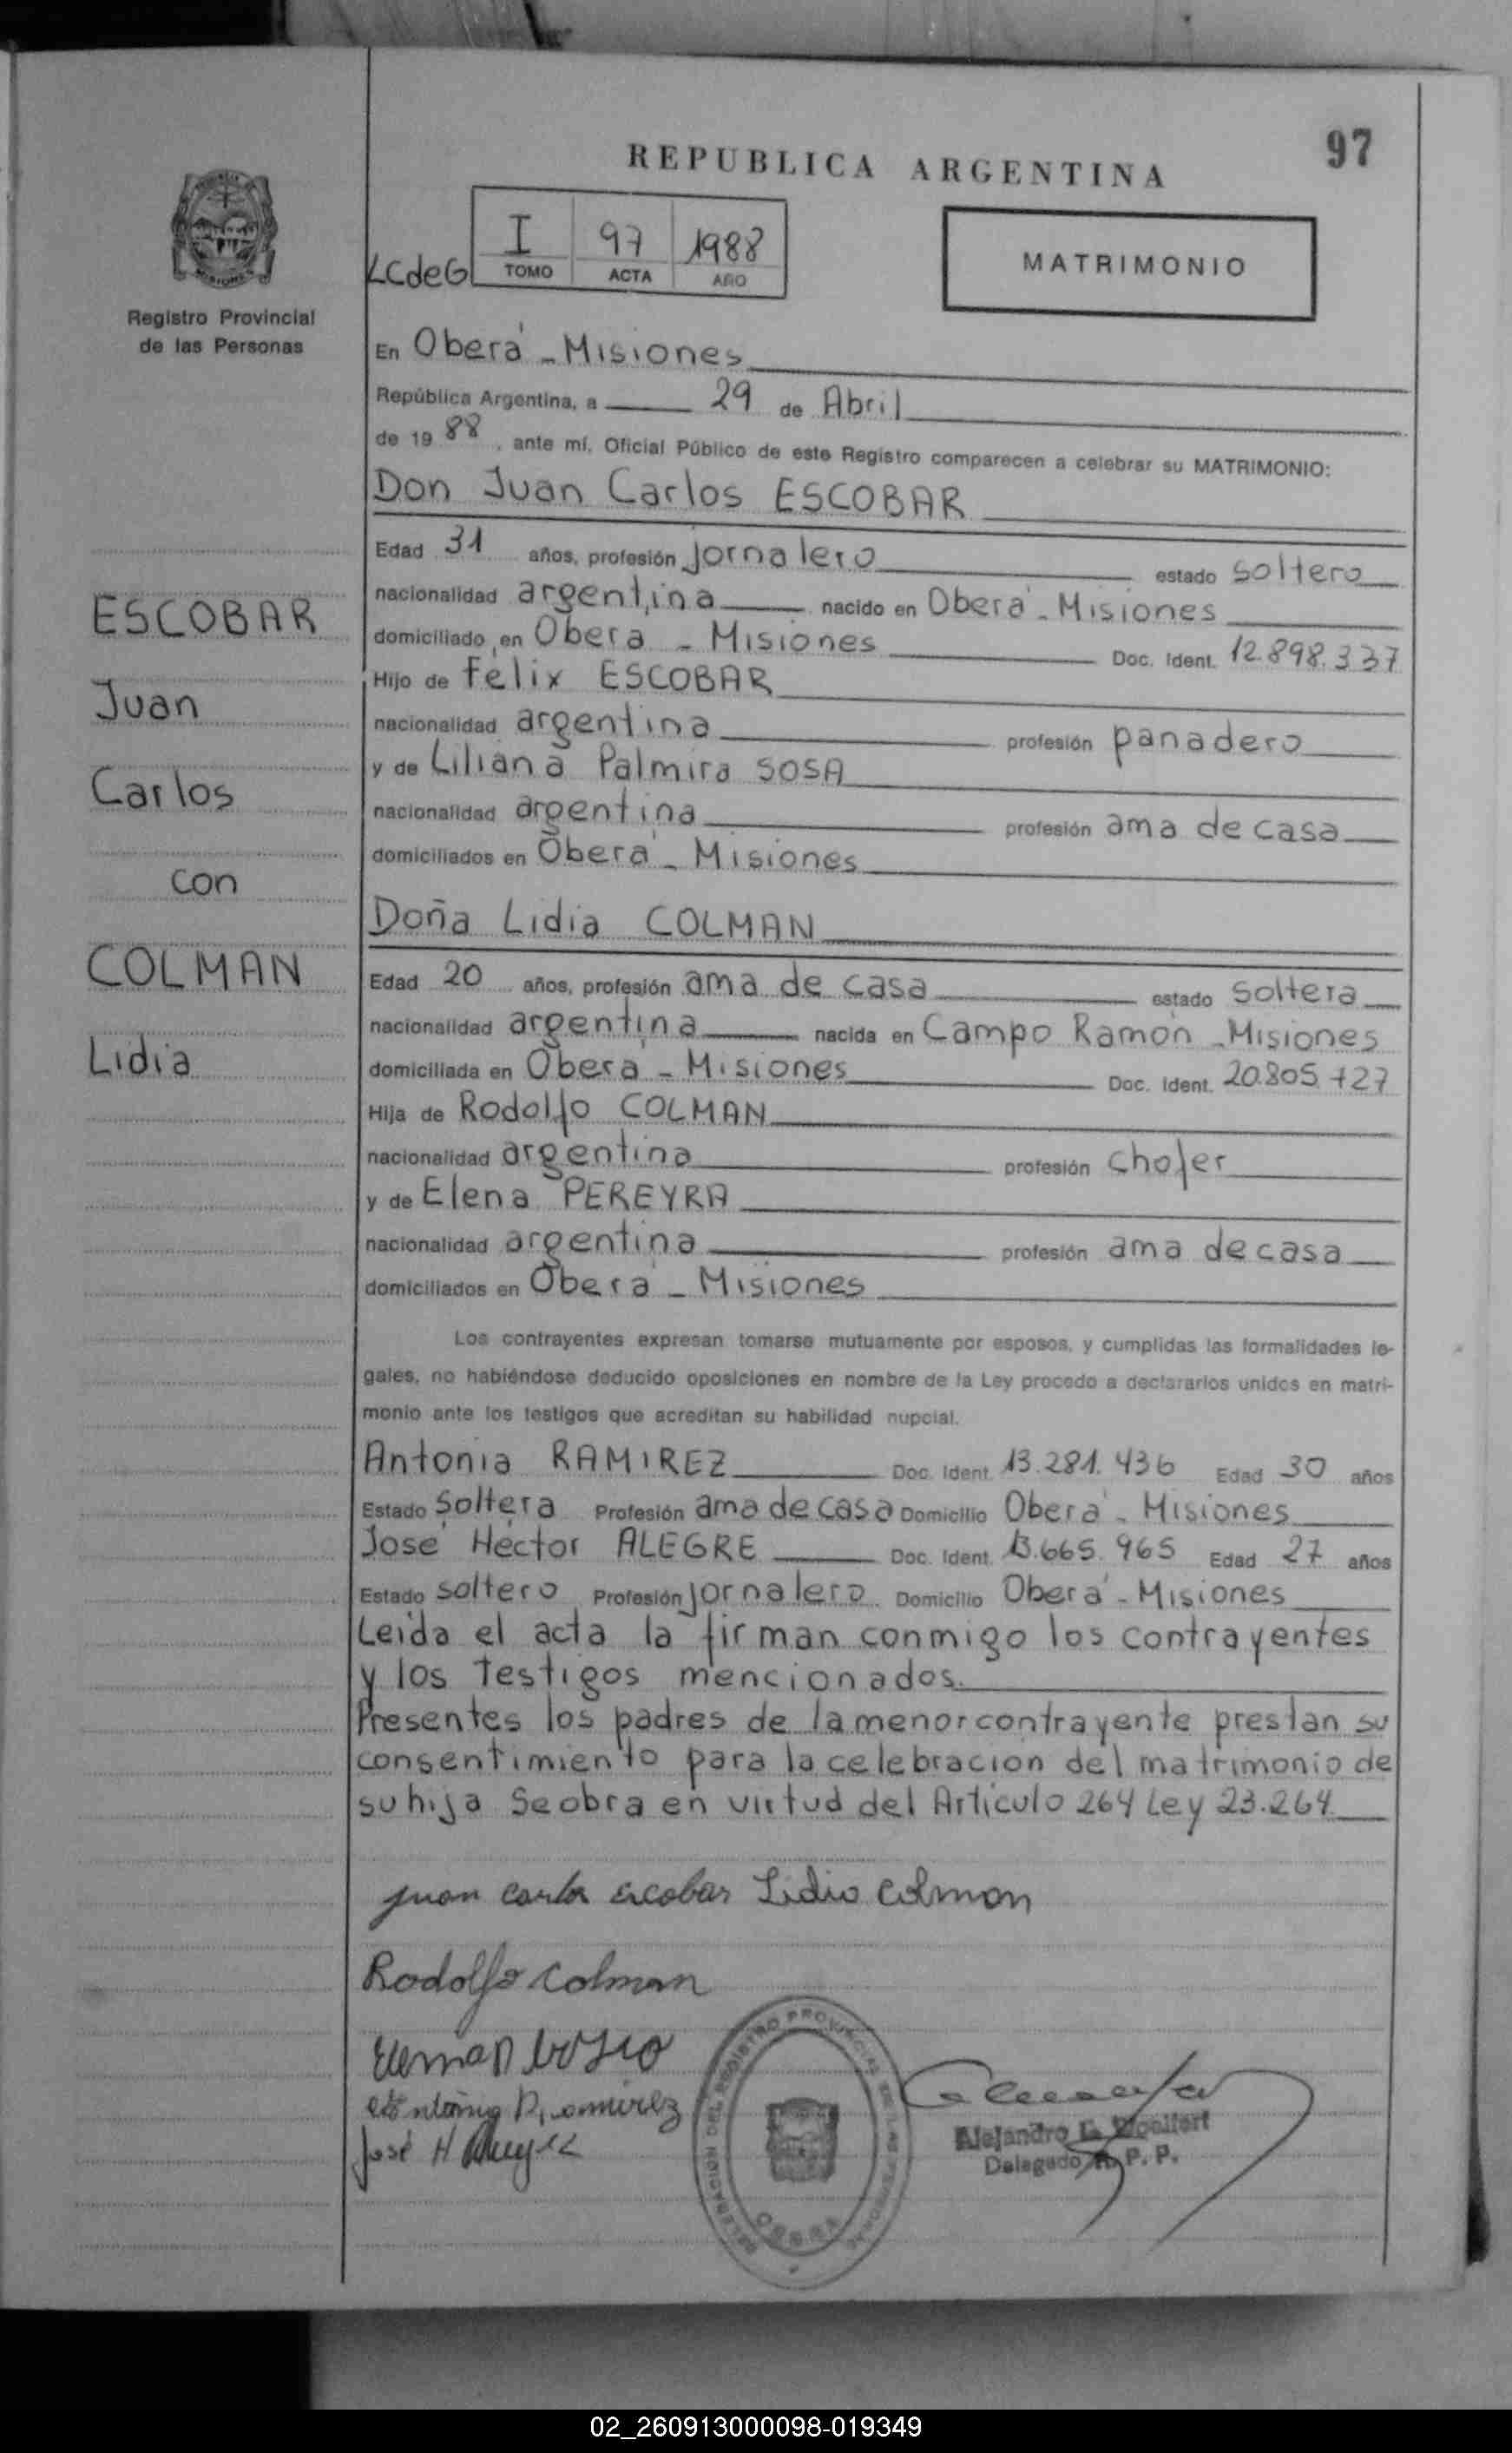 97
REPUBLICA ARGENTINA
I 97 1988
LCdeG TOMO ACTA AÑO
MATRIMONIO
Registro Provincial
de las Personas
En Oberá - Misiones
República Argentina, a 29 de Abril
de 19 88, ante mí, Oficial Público de este Registro comparecen a celebrar su MATRIMONIO:
Don Juan Carlos ESCOBAR
Edad 31 años, profesión jornalero estado soltero
nacionalidad argentina nacido en Oberá - Misiones
domiciliado en Oberá - Misiones Doc. Ident. 12.898.337
Hijo de Felix ESCOBAR
nacionalidad argentina profesión panadero
y de Liliana Palmira SOSA
nacionalidad argentina profesión ama de casa
domiciliados en Oberá - Misiones
Doña Lidia COLMAN
Edad 20 años, profesión ama de casa estado soltera
nacionalidad argentina nacida en Campo Ramón - Misiones
domiciliada en Oberá - Misiones Doc. Ident. 20.805.727
Hija de Rodolfo COLMAN
nacionalidad argentina profesión chofer
y de Elena PEREYRA
nacionalidad argentina profesión ama de casa
domiciliados en Oberá - Misiones
ESCOBAR
Juan
Carlos
con
COLMAN
Lidia
Los contrayentes expresan tomarse mutuamente por esposos, y cumplidas las formalidades le-
gales, no habiéndose deducido oposiciones en nombre de la Ley procedo a declararlos unidos en matri-
monio ante los testigos que acreditan su habilidad nupcial.
Antonia RAMIREZ Doc. Ident. 13.281.436 Edad 30 años
Estado soltera Profesión ama de casa Domicilio Oberá - Misiones
José Héctor ALEGRE Doc. Ident. 13.665.965 Edad 27 años
Estado soltero Profesión jornalero Domicilio Oberá - Misiones
Leida el acta la firman conmigo los contrayentes
y los testigos mencionados.
Presentes los padres de la menor contrayente prestan su
consentimiento para la celebracion del matrimonio de
su hija Se obra en virtud del Articulo 264 Ley 23.264
Juan Carlos Escobar Lidia Colman
Rodolfo Colman
Antonia Ramirez
José H
DELEGACION DEL REGISTRO PROVINCIAL DE LAS PERSONAS
OBERA
Alejandro
Delegado R. P. P.
02_260913000098-019349